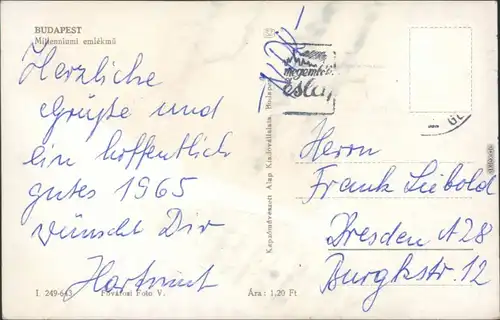 BUDAPEST
Millenniumi emlékmű
Herzliche
Grüße und
ein hoffentlich
gutes 1965
wünscht Dir
Hartmut
I. 249-643
Fővárosi Foto V.
Képzőművészeti Alap Kiadóvállalata, Budapest
Ára: 1,20 Ft
Herrn
Frank Liebold
Dresden A 28
Burgkstr. 12